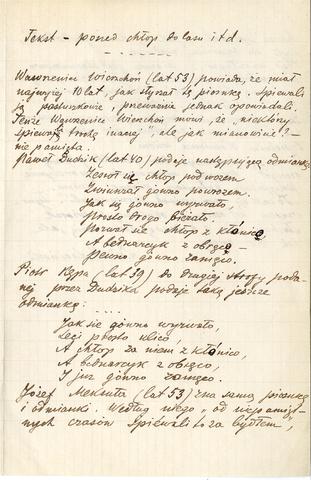 Tekst – poszed chłop do lasu itd.
Wawrzeniec Wierchoń (lat 53) powiada, że miał
najwyżej 10 lat, jak słyszał tę piosnkę. Śpiewali
ją pastuszkowie, przeważnie jednak opowiadali.
Tenże Wawrzeniec Wierchoń mówi, że "niektórzy
śpiewają trochę inaczej", ale jak mianowicie? –
nie pamięta.
Paweł Dudzik (lat 40) podaje następującą odmiankę:
Zesrał się chłop pod wozem
Zwiunzał gówno powrozem.
Jak się gówno wyrwało,
Prosto drogo bieżało.
się chłop z kłónico
A bednarcyk z obręco –
Pewno gówno zamęco.
Piotr (lat 39) do drugiej strofy poda-
nej przez Dudzika podaje taką jeszcze
odmiankę:
Jak się gówno wyrwało,
Leci prosto ulico,
A chłop za niem z kłónico,
A bednarcyk z obręco,
I już gówno zamęco.
Józef (lat 53) zna samą piosnkę
i odmianki. Według niego "od niepamięt-
nych czasów śpiewali to za bydłem",